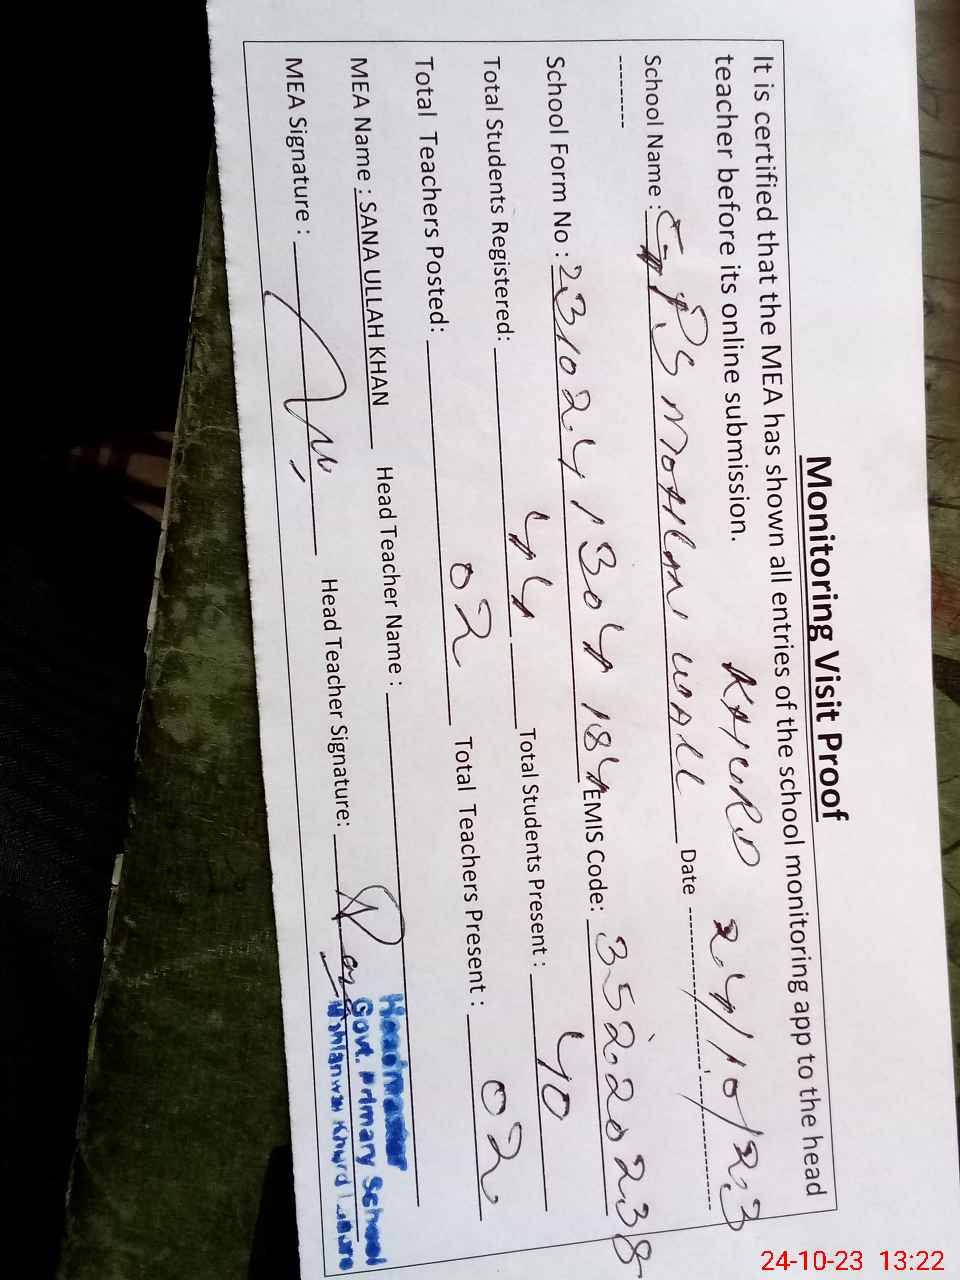 Monitoring Visit Proof
It is certified that the MEA has shown all entries of the school monitoring app to the head
teacher before its online submission.
KHURD 24/10/23
School Name : GPS MOHLAN WALL Date
School Form No : 2310241304184 EMIS Code: 35220238
Total Students Registered: 44 Total Students Present : 40
Total Teachers Posted: 02 Total Teachers Present : 02
MEA Name : SANA ULLAH KHAN Head Teacher Name :
MEA Signature : Head Teacher Signature:
Headmaster
Govt. Primary School
Mohlanwal Khurd Lahore
24-10-23 13:22